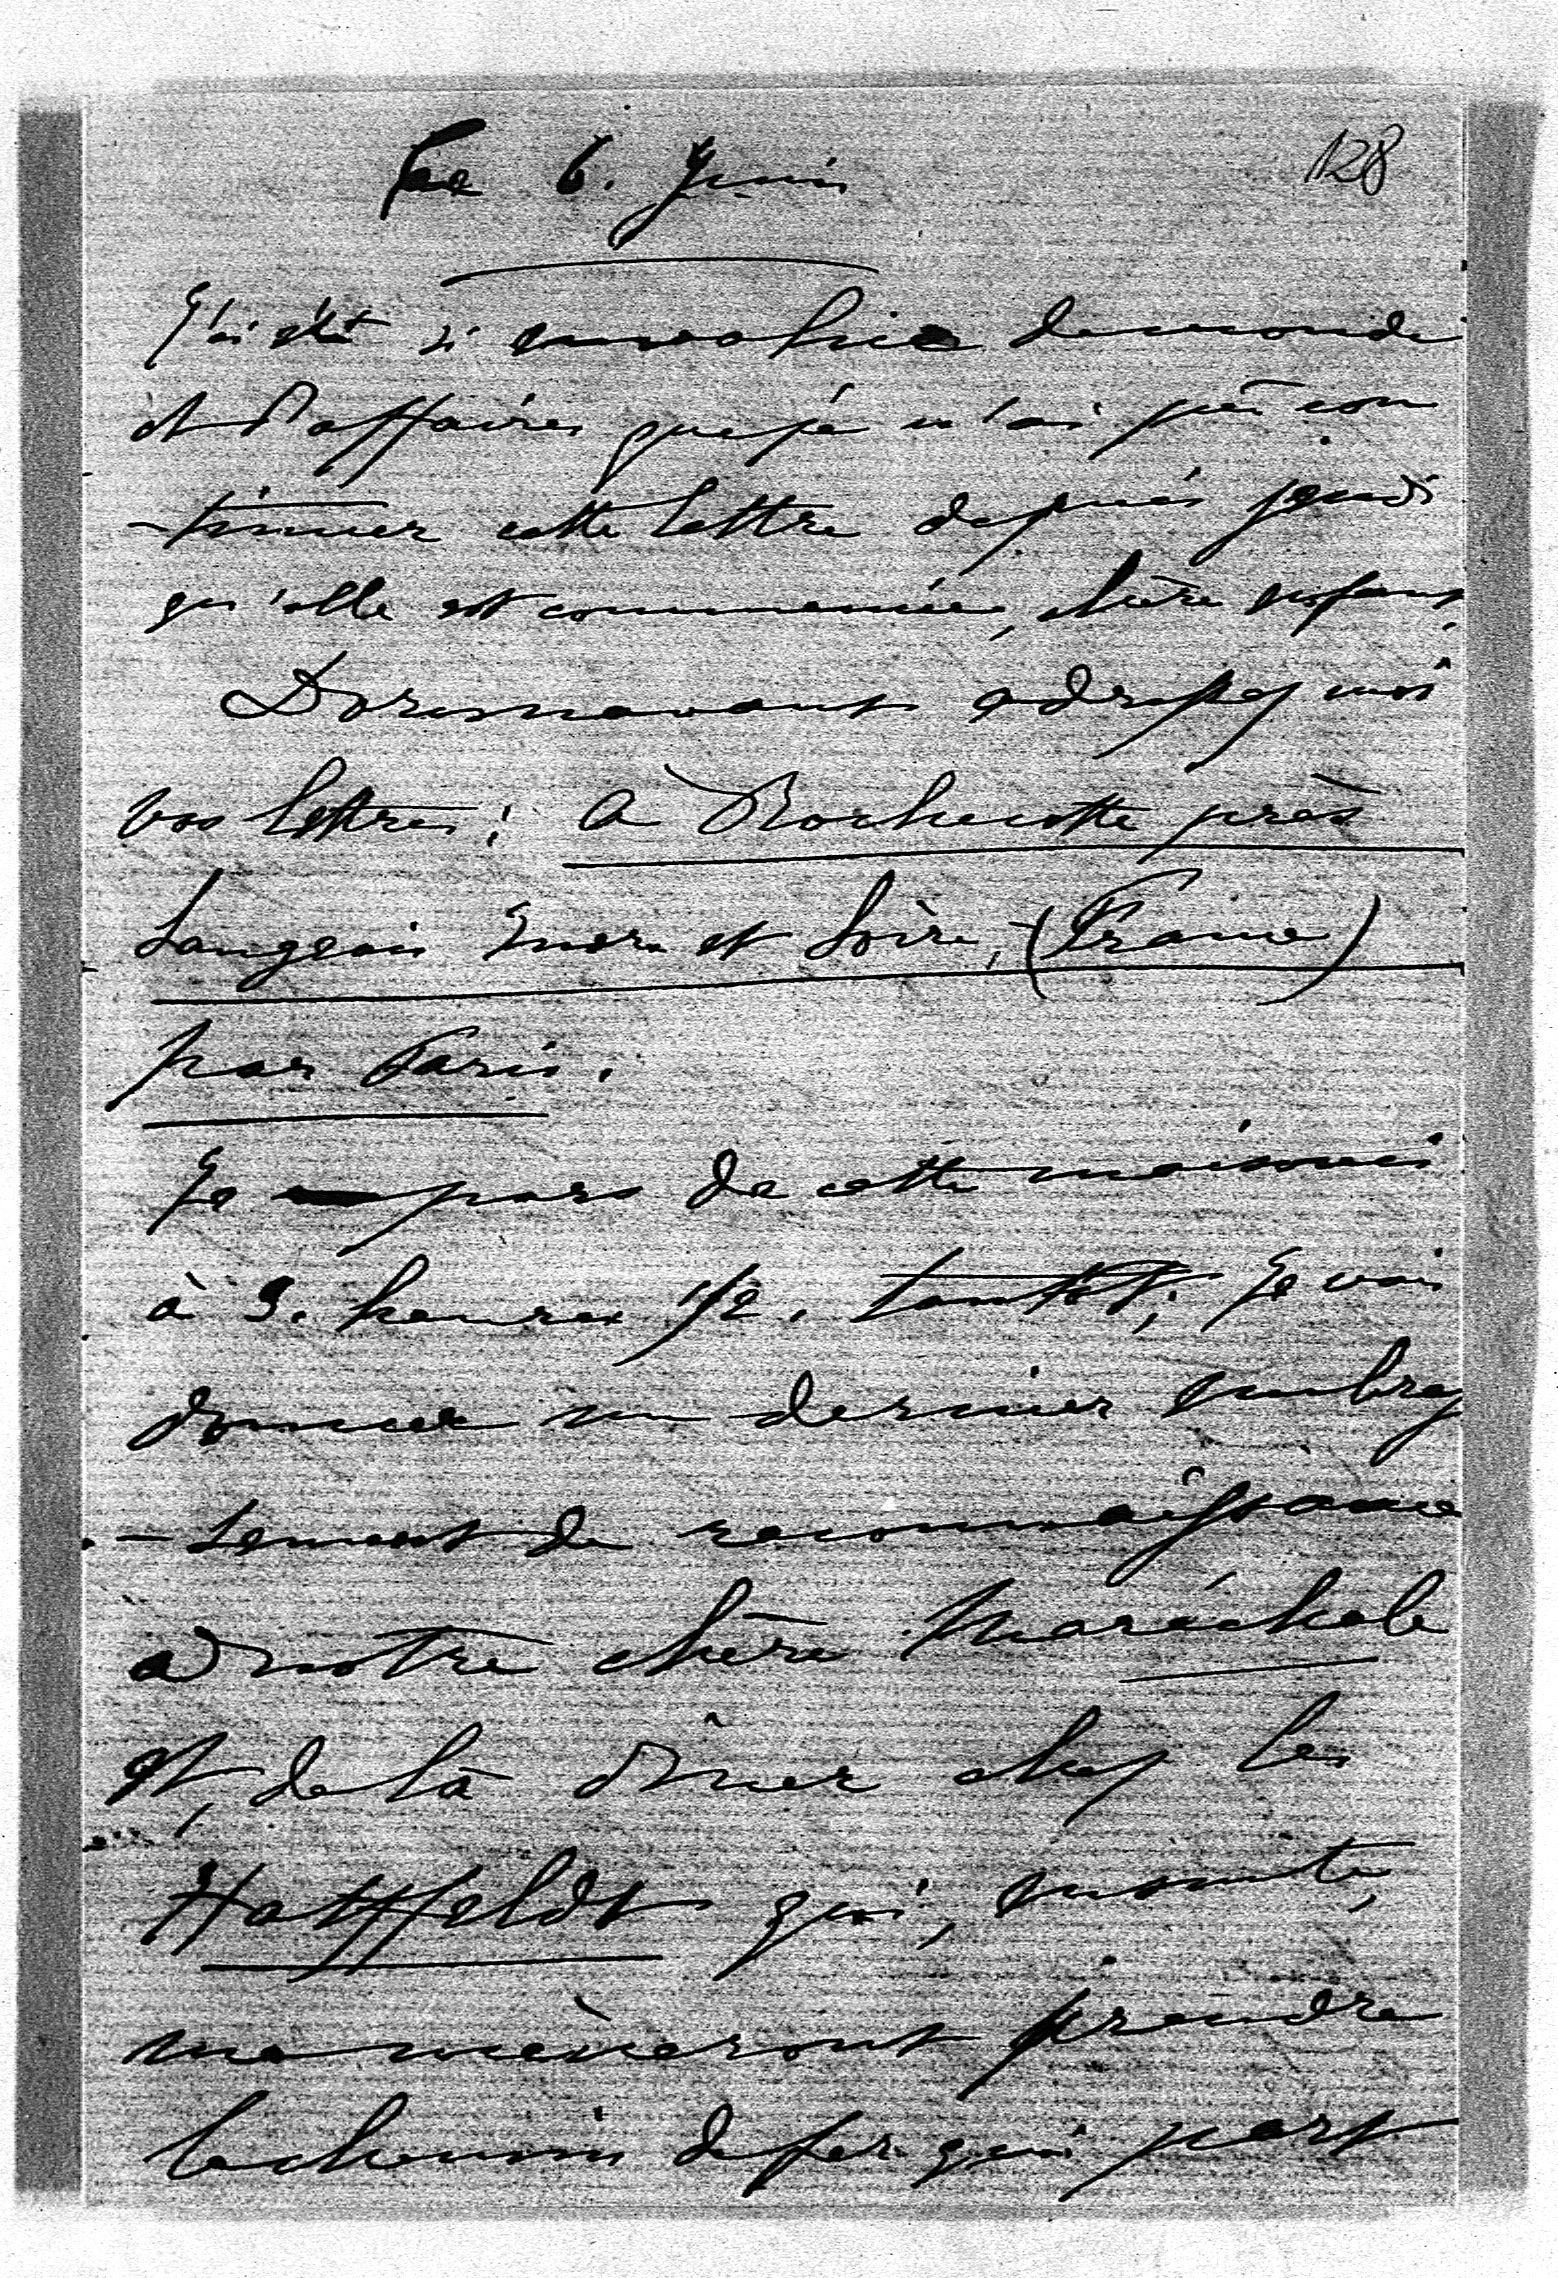 128
Le 6. Juin
J'ai été si envahie de monde
et d'affaires que je n'ai pû con
-tinuer cette lettre depuis jeudi
qu'elle est commencée, chère enfant,
Doresnavant adressez moi
vos lettres: à Rochecotte près
Langeais Indre et Loire, (France)
par Paris.
Je pars de cette maison ci
à 5. heures 1/2. tantôt; Je vais
donner un dernier embras
-sement de reconnaissance
à notre chère Maréchale
et, de là dîner chez les
Hatzfeldt qui, ensuite,
me mèneront prendre
le chemin de fer qui part